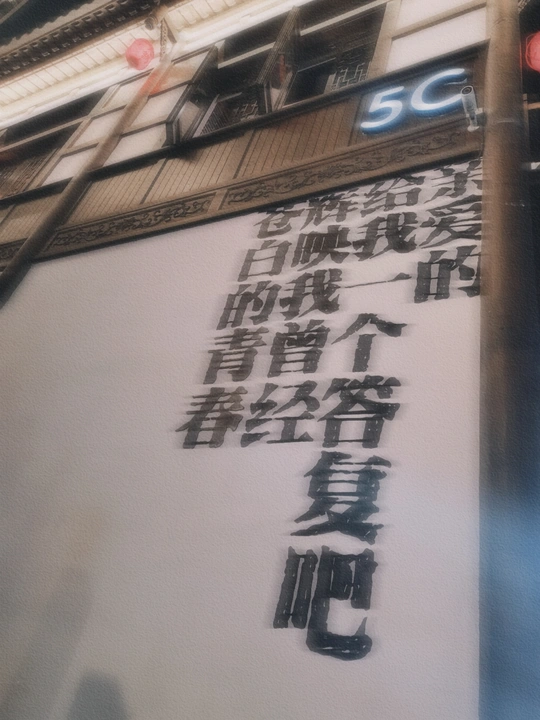 5G
亲爱的
给我一个答复吧
辉映我曾经
苍白的青春